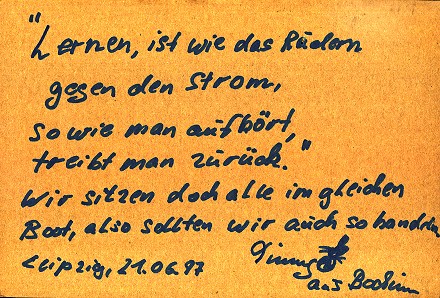 "Lernen, ist wie das Rüdern
gegen den Strom,
sowie man aufhört,
treibt man zurück."
Wir sitzen doch alle im gleichen
Boot, also sollten wir auch so handeln
Leipzig, 21.06.97
aus Bochum